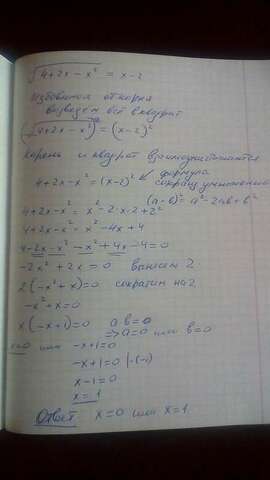 √4+2x-x² = x-2
Избавимся от корня
возведем всё в квадрат
(√4+2x-x²)² = (x-2)²
Корень и квадрат взаимоуничтожаются
4+2x-x² = (x-2)² ↙ формула
сокращ умножения
(a-b)² = a²-2ab+b²
4+2x-x² = x²-2·x·2+2²
4+2x-x² = x²-4x+4
4-2x-x²-x²+4x-4=0
-2x²+2x=0 вынесем 2
2(-x²+x)=0 сократим на 2
-x²+x=0
x(-x+1)=0 a·b=0
⇒ a=0 или b=0
x=0 или -x+1=0
-x+1=0 |·(-1)
x-1=0
x=1
Ответ: x=0 или x=1